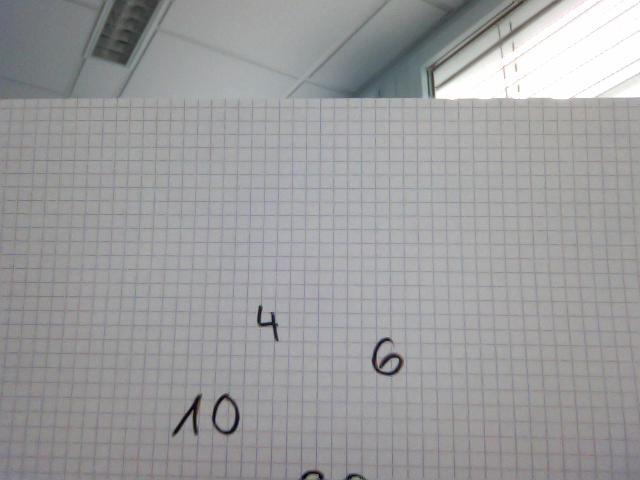 4
6
10